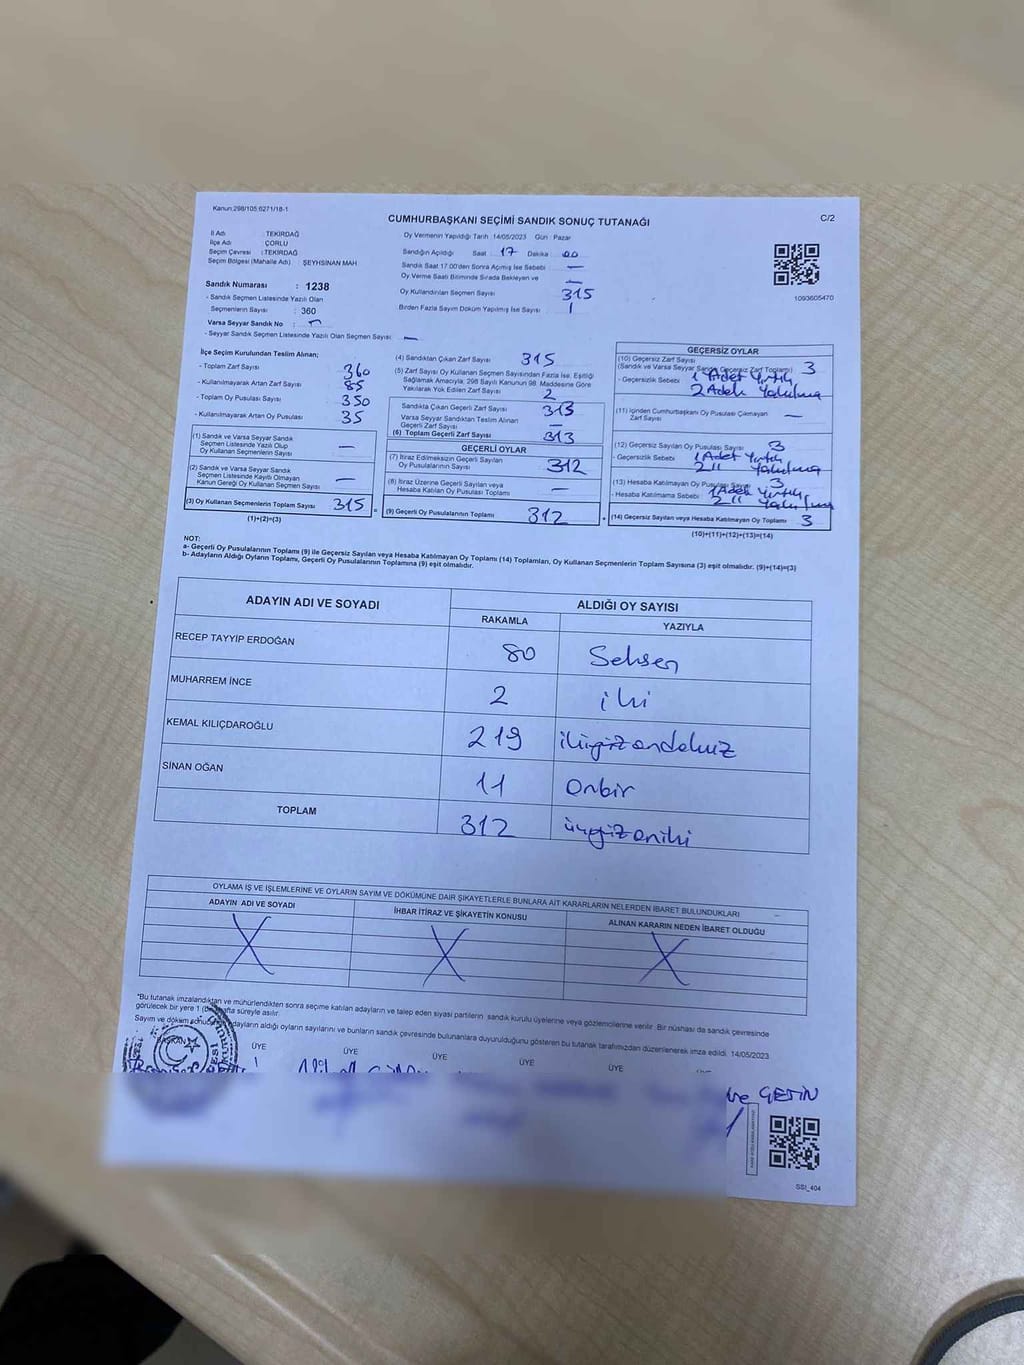 Kanun:298/105;6271/18-1
C/2
CUMHURBAŞKANI SEÇİMİ SANDIK SONUÇ TUTANAĞI
İl Adı : TEKİRDAĞ
İlçe Adı : ÇORLU
Seçim Çevresi : TEKİRDAĞ
Seçim Bölgesi (Mahalle Adı) : ŞEYHSİNAN MAH.
Oy Vermenin Yapıldığı Tarih 14/05/2023 Gün : Pazar
Sandığın Açıldığı Saat 17 Dakika 00
Sandık Saat 17.00'den Sonra Açılmış İse Sebebi —
Oy Verme Saati Bitiminde Sırada Bekleyen ve —
Oy Kullandırılan Seçmen Sayısı 315
Birden Fazla Sayım Döküm Yapılmış İse Sayısı 1
1093605470
Sandık Numarası : 1238
- Sandık Seçmen Listesinde Yazılı Olan
Seçmenlerin Sayısı : 360
Varsa Seyyar Sandık No :
- Seyyar Sandık Seçmen Listesinde Yazılı Olan Seçmen Sayısı: —
İlçe Seçim Kurulundan Teslim Alınan;
- Toplam Zarf Sayısı 360
- Kullanılmayarak Artan Zarf Sayısı 85
- Toplam Oy Pusulası Sayısı 350
- Kullanılmayarak Artan Oy Pusulası 35
(1) Sandık ve Varsa Seyyar Sandık
Seçmen Listesinde Yazılı Olup
Oy Kullanan Seçmenlerin Sayısı —
(2) Sandık ve Varsa Seyyar Sandık
Seçmen Listesinde Kayıtlı Olmayan
Kanun Gereği Oy Kullanan Seçmen Sayısı —
(3) Oy Kullanan Seçmenlerin Toplam Sayısı 315
(1)+(2)=(3)
(4) Sandıktan Çıkan Zarf Sayısı 315
(5) Zarf Sayısı Oy Kullanan Seçmen Sayısından Fazla İse, Eşitliği
Sağlamak Amacıyla, 298 Sayılı Kanunun 98. Maddesine Göre
Yakılarak Yok Edilen Zarf Sayısı 2
Sandıkta Çıkan Geçerli Zarf Sayısı 313
Varsa Seyyar Sandıktan Teslim Alınan
Geçerli Zarf Sayısı —
(6) Toplam Geçerli Zarf Sayısı 313
GEÇERLİ OYLAR
(7) İtiraz Edilmeksizin Geçerli Sayılan
Oy Pusulalarının Sayısı 312
(8) İtiraz Üzerine Geçerli Sayılan veya
Hesaba Katılan Oy Pusulası Toplamı —
(9) Geçerli Oy Pusulalarının Toplamı 312
GEÇERSİZ OYLAR
(10) Geçersiz Zarf Sayısı
(Sandık ve Varsa Seyyar Sandık Geçersiz Zarf Toplamı) 3
- Geçersizlik Sebebi 1 Adet Yırtık
2 Adet Yakılma
(11) İçinden Cumhurbaşkanı Oy Pusulası Çıkmayan
Zarf Sayısı —
(12) Geçersiz Sayılan Oy Pusulası Sayısı 3
- Geçersizlik Sebebi 1 Adet Yırtık
2 11 Yakılma
(13) Hesaba Katılmayan Oy Pusulası Sayısı 3
- Hesaba Katılmama Sebebi 1 Adet Yırtık
2 11 Yakılma
(14) Geçersiz Sayılan veya Hesaba Katılmayan Oy Toplamı 3
(10)+(11)+(12)+(13)=(14)
NOT:
a- Geçerli Oy Pusulalarının Toplamı (9) ile Geçersiz Sayılan veya Hesaba Katılmayan Oy Toplamı (14) Toplamları, Oy Kullanan Seçmenlerin Toplam Sayısına (3) eşit olmalıdır. (9)+(14)=(3)
b- Adayların Aldığı Oyların Toplamı, Geçerli Oy Pusulalarının Toplamına (9) eşit olmalıdır.
ADAYIN ADI VE SOYADI ALDIĞI OY SAYISI
RAKAMLA YAZIYLA
RECEP TAYYİP ERDOĞAN 80 Seksen
MUHARREM İNCE 2 iki
KEMAL KILIÇDAROĞLU 219 ikiyüzondokuz
SİNAN OĞAN 11 Onbir
TOPLAM 312 üçyüzoniki
OYLAMA İŞ VE İŞLEMLERİNE VE OYLARIN SAYIM VE DÖKÜMÜNE DAİR ŞİKAYETLERLE BUNLARA AİT KARARLARIN NELERDEN İBARET BULUNDUKLARI
ADAYIN ADI VE SOYADI İHBAR İTİRAZ VE ŞİKAYETİN KONUSU ALINAN KARARIN NEDEN İBARET OLDUĞU
X X X
*Bu tutanak imzalandıktan ve mühürlendikten sonra seçime katılan adayların ve talep eden siyasi partilerin sandık kurulu üyelerine veya gözlemcilerine verilir. Bir nüshası da sandık çevresinde
görülecek bir yere 1 (bir) hafta süreyle asılır.
Sayım ve döküm sonucunda adayların aldığı oyların sayılarını ve bunların sandık çevresinde bulunanlara duyurulduğunu gösteren bu tutanak tarafımızdan düzenlenerek imza edildi. 14/05/2023
BAŞKAN ÜYE ÜYE ÜYE ÜYE ÜYE
ÇETİN
SSI_404